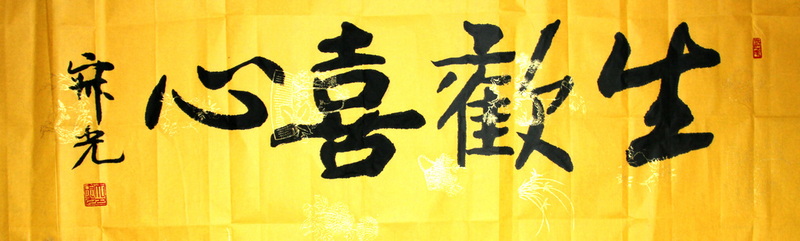 生歡喜心
光